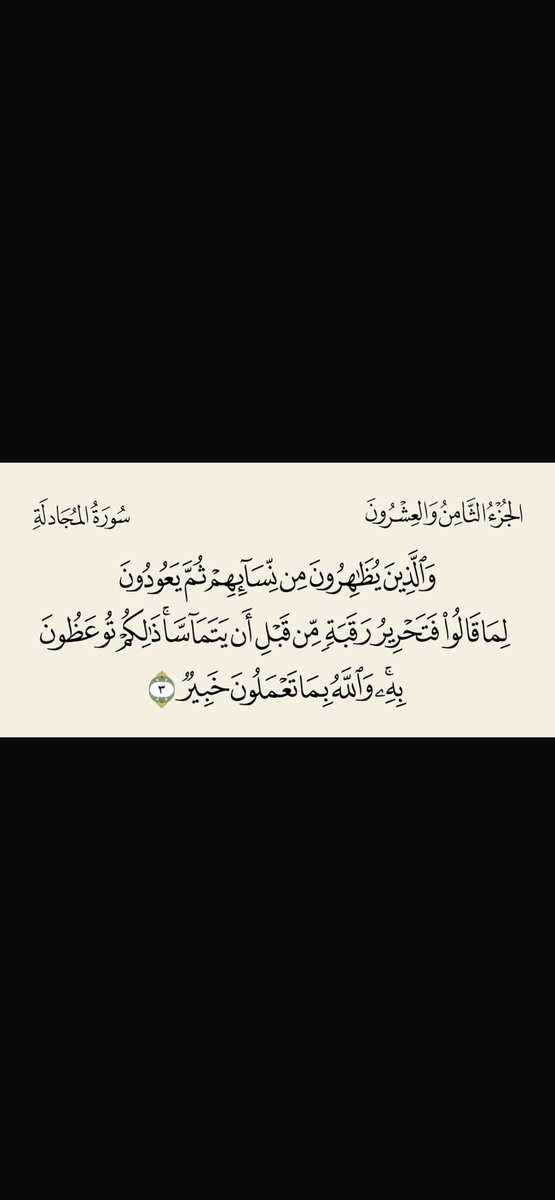 الجُزْءُ الثَّامِنُ وَالعِشْرُونَ
سُورَةُ المُجَادلَةِ
وَٱلَّذِينَ يُظَٰهِرُونَ مِن نِّسَآئِهِمْ ثُمَّ يَعُودُونَ
لِمَا قَالُوا۟ فَتَحْرِيرُ رَقَبَةٍ مِّن قَبْلِ أَن يَتَمَآسَّا ۚ ذَٰلِكُمْ تُوعَظُونَ
بِهِۦ ۚ وَٱللَّهُ بِمَا تَعْمَلُونَ خَبِيرٌ ٣